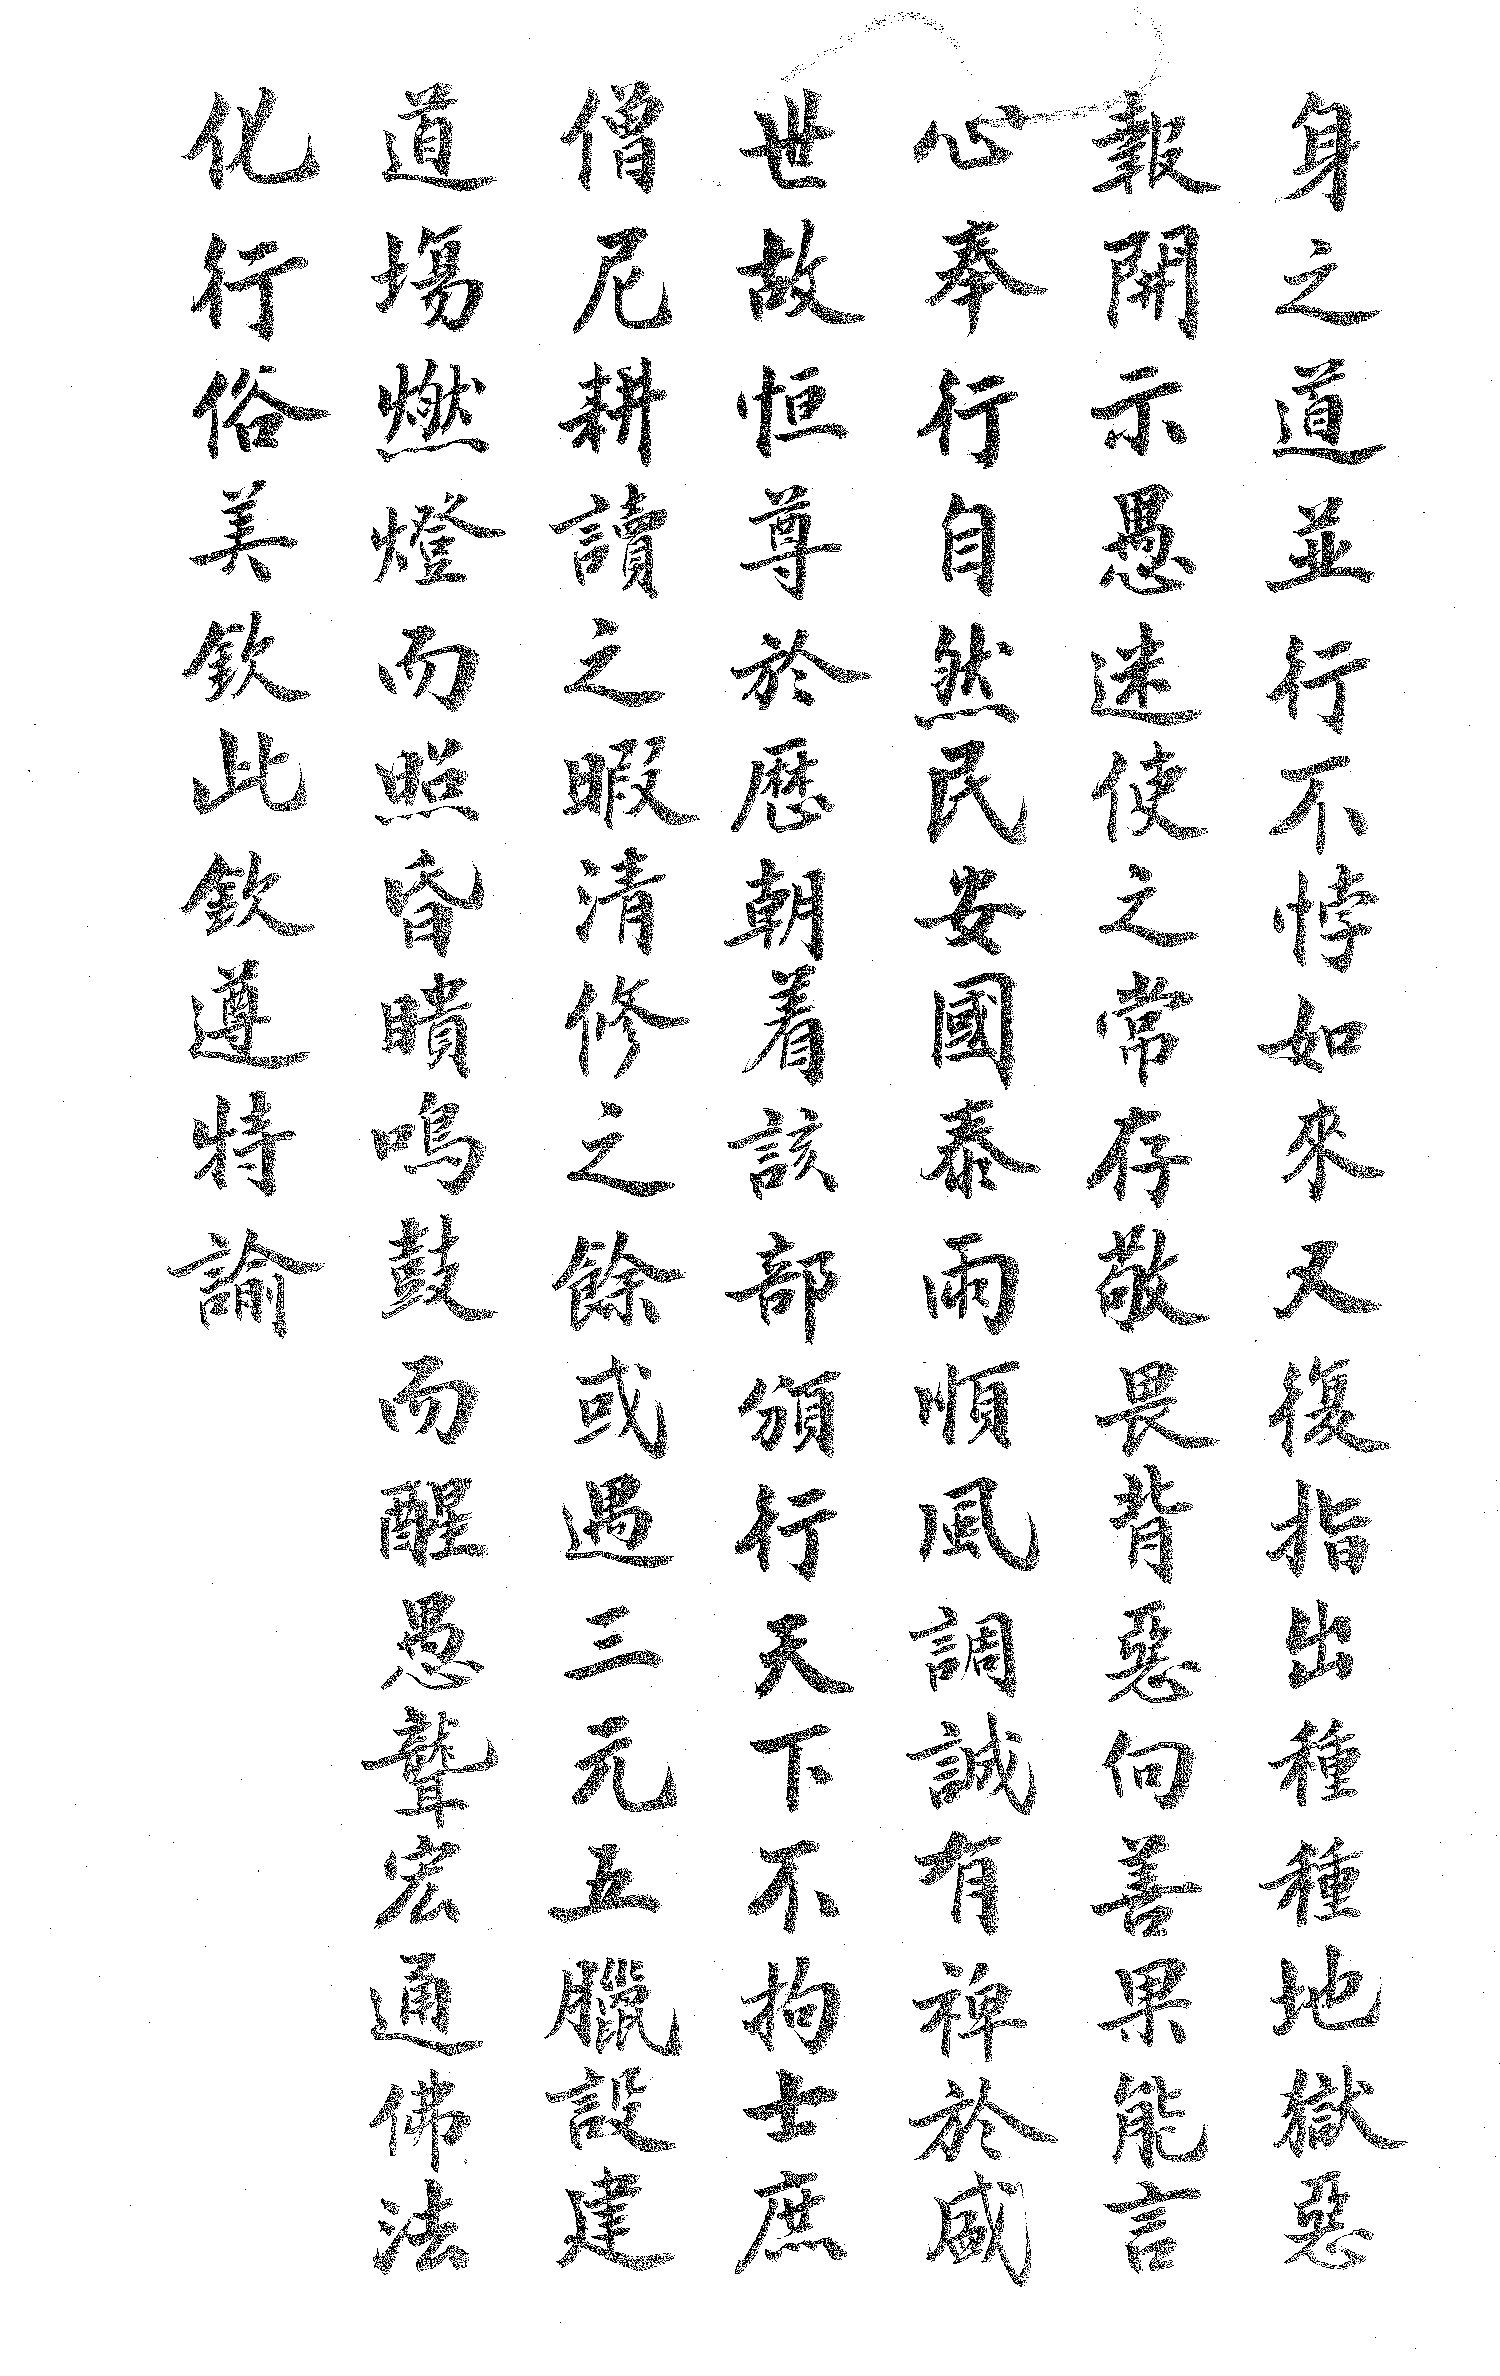 身之道並行不悖如來又復指出種種地獄惡
報開示愚迷使之常存敬畏背惡向善果能言
心奉行自然民安國泰雨順風調誠有裨於盛
世故恒尊於歷朝着該部頒行天下不拘士庶
僧尼耕讀之暇清修之餘或遇三元五臘設建
道場燃燈而照昏瞶鳴鼓而醒愚聾宏通佛法
化行俗美欽此欽遵特諭